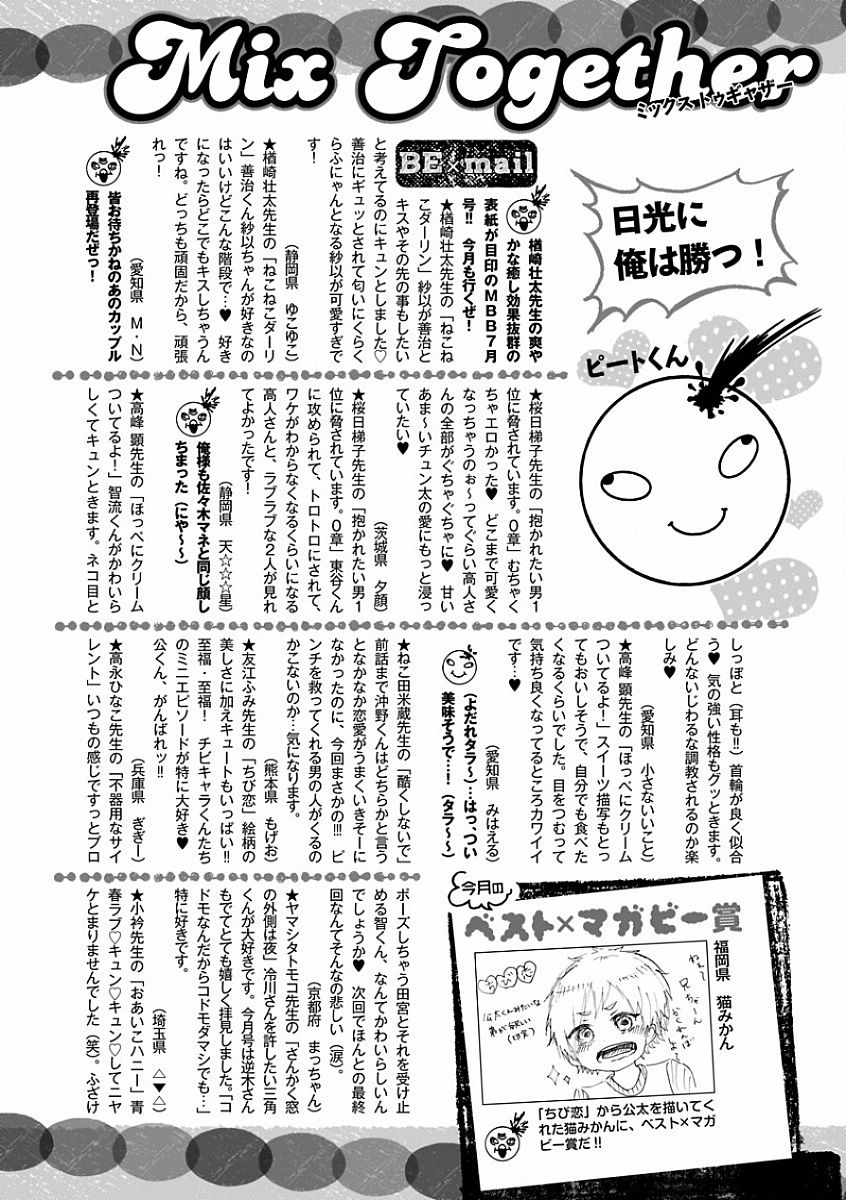 Mix Together
ミックストゥギャザー
日光に
俺は勝つ！
ピートくん
BE×mail
楢崎壮太先生の爽や
かな癒し効果抜群の
表紙が目印のＭＢＢ７月
号!!　今月も行くぜ！
★楢崎壮太先生の「ねこね
こダーリン」紗以が善治と
キスやその先の事もしたい
と考えてるのにキュンとしました♡
善治にギュッとされて匂いにくらく
らふにゃんとなる紗以が可愛すぎで
す！
（静岡県　ゆこゆこ）
★楢崎壮太先生の「ねこねこダーリ
ン」善治くん紗以ちゃんが好きなの
はいいけどこんな階段で…♥　好き
になったらどこでもキスしちゃうん
ですね。どっちも頑固だから、頑張
れっ！
（愛知県　Ｍ・Ｎ）
皆お待ちかねのあのカップル
再登場だぜっ！
★桜日梯子先生の「抱かれたい男１
位に脅されています。０章」むちゃく
ちゃエロかった♥　どこまで可愛く
なっちゃうのぉ～ってぐらい高人さ
んの全部がぐちゃぐちゃに♥　甘い
あま～いチュン太の愛にもっと浸っ
ていたい♥
（茨城県　夕顔）
★桜日梯子先生の「抱かれたい男１
位に脅されています。０章」東谷くん
に攻められて、トロトロにされて、
ワケがわからなくなるくらいになる
高人さんと、ラブラブな２人が見れ
てよかったです！
（静岡県　天☆☆☆星）
俺様も佐々木マネと同じ顔し
ちまった（にゃ～～）
★高峰　顕先生の「ほっぺにクリーム
ついてるよ！」智流くんがかわいら
しくてキュンときます。ネコ目と
しっぽと（耳も!!）首輪が良く似合
う♥　気の強い性格もグッときます。
どんないじわるな調教されるのか楽
しみ♥
（愛知県　小さないいこと）
★高峰　顕先生の「ほっぺにクリーム
ついてるよ！」スイーツ描写もとっ
てもおいしそうで、自分でも食べた
くなるくらいでした。目をつむって
気持ち良くなってるところカワイイ
です…♥
（愛知県　みはえる）
（よだれタラ～）…はっ、つい
美味そうで…！（タラ～～）
★ねこ田米蔵先生の「酷くしないで」
前話まで沖野くんはどちらかと言う
となかなか恋愛がうまくいきそーに
なかったのに、今回まさかの!!!　ピ
ンチを救ってくれる男の人がくるの
かこないのか…気になります。
（熊本県　もげお）
★友江ふみ先生の「ちび恋」絵柄の
美しさに加えキュートもいっぱい!!
至福・至福！　チビキャラくんたち
のミニエピソードが特に大好き♥
公くん、がんばれッ!!
（兵庫県　ぎぎー）
★高永ひなこ先生の「不器用なサイ
レント」いつもの感じですっとプロ
ポーズしちゃう田宮とそれを受け止
める智くん、なんてかわいらしいん
でしょうか♥　次回でほんとの最終
回なんてそんなの悲しい（涙）。
（京都府　まっちゃん）
★ヤマシタトモコ先生の「さんかく窓
の外側は夜」冷川さんを許したい三角
くんが大好きです。今月号は逆木さん
もでてとても嬉しく拝見しました。「コ
ドモなんだからコドモダマシでも…」
特に好きです。
（埼玉県　△▼△）
★小衿先生の「おあいこハニー」青
春ラブ♡キュン♡キュン♡してニヤ
ケとまりませんでした（笑）。ふざけ
今月の
ベスト×マガビー賞
福岡県　猫みかん
ちび恋
公太くんみたいな
弟が欲しい
（切実）
ねぇて
「ちび恋」から公太を描いてく
れた猫みかんに、ベスト×マガ
ビー賞だ!!